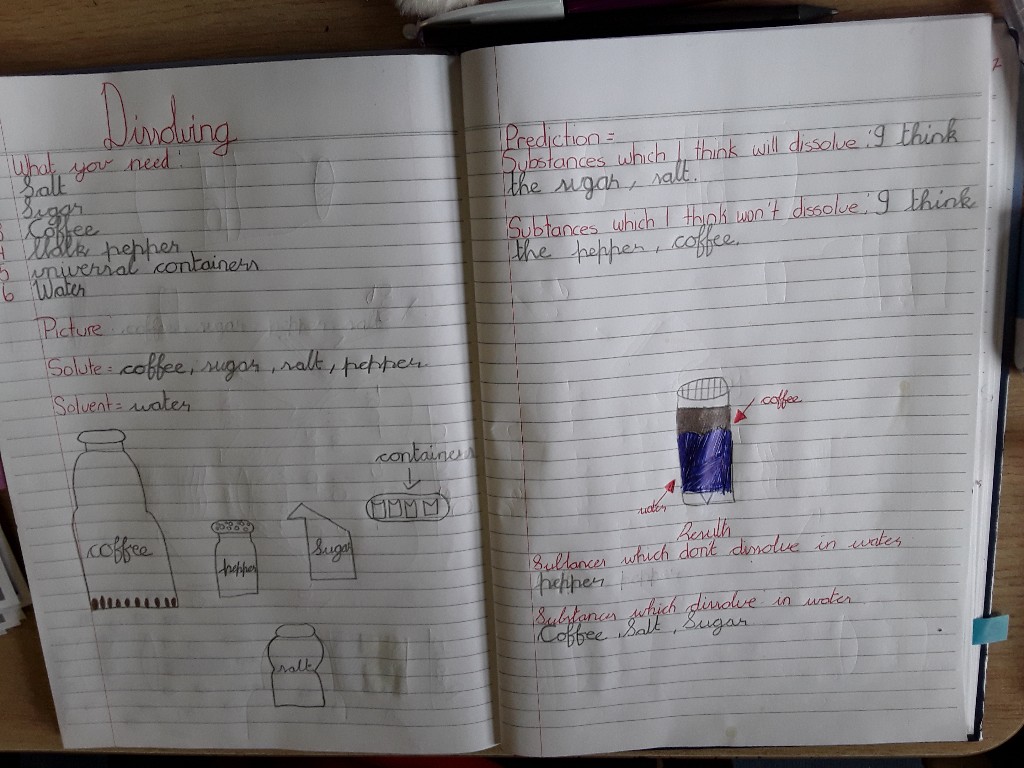 Dissolving
What you need:
Salt
Sugar
Coffee
pepper
5 universal containers
6 Water
Picture
Solute = coffee, sugar, salt, pepper.
Solvent = water
containers
coffee
pepper
Sugar
salt
Prediction =
Substances which I think will dissolve: I think
the sugar, salt.
Subtances which I think won't dissolve: I think
the pepper, coffee.
coffee
water
Result
Substances which don't dissolve in water
pepper
Substances which dissolve in water
Coffee, Salt, Sugar